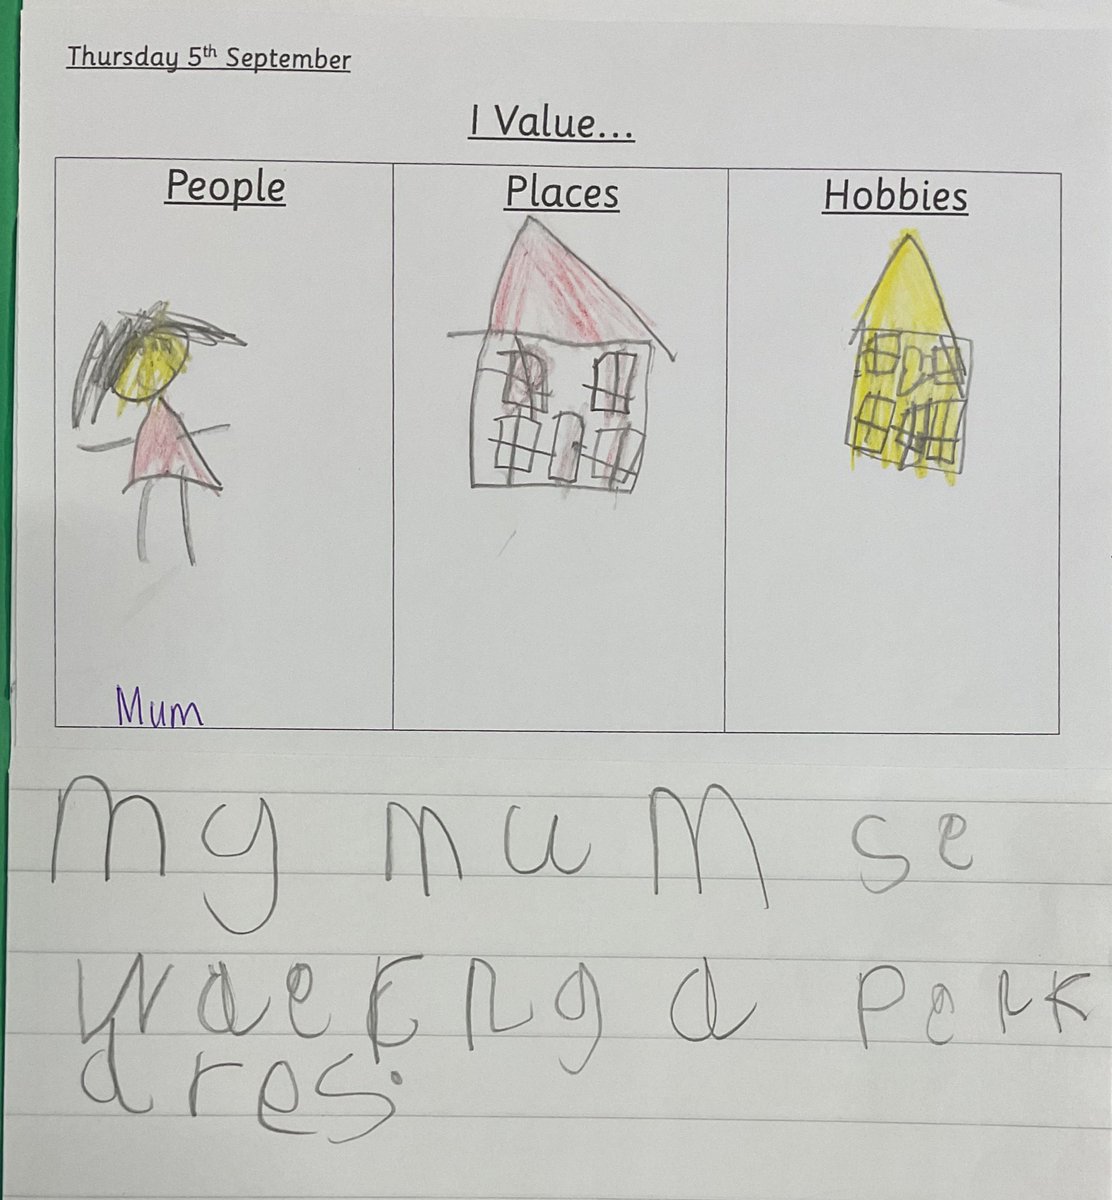 Thursday 5th September
I Value...
People Places Hobbies
Mum
My mum se
a penk
dres.